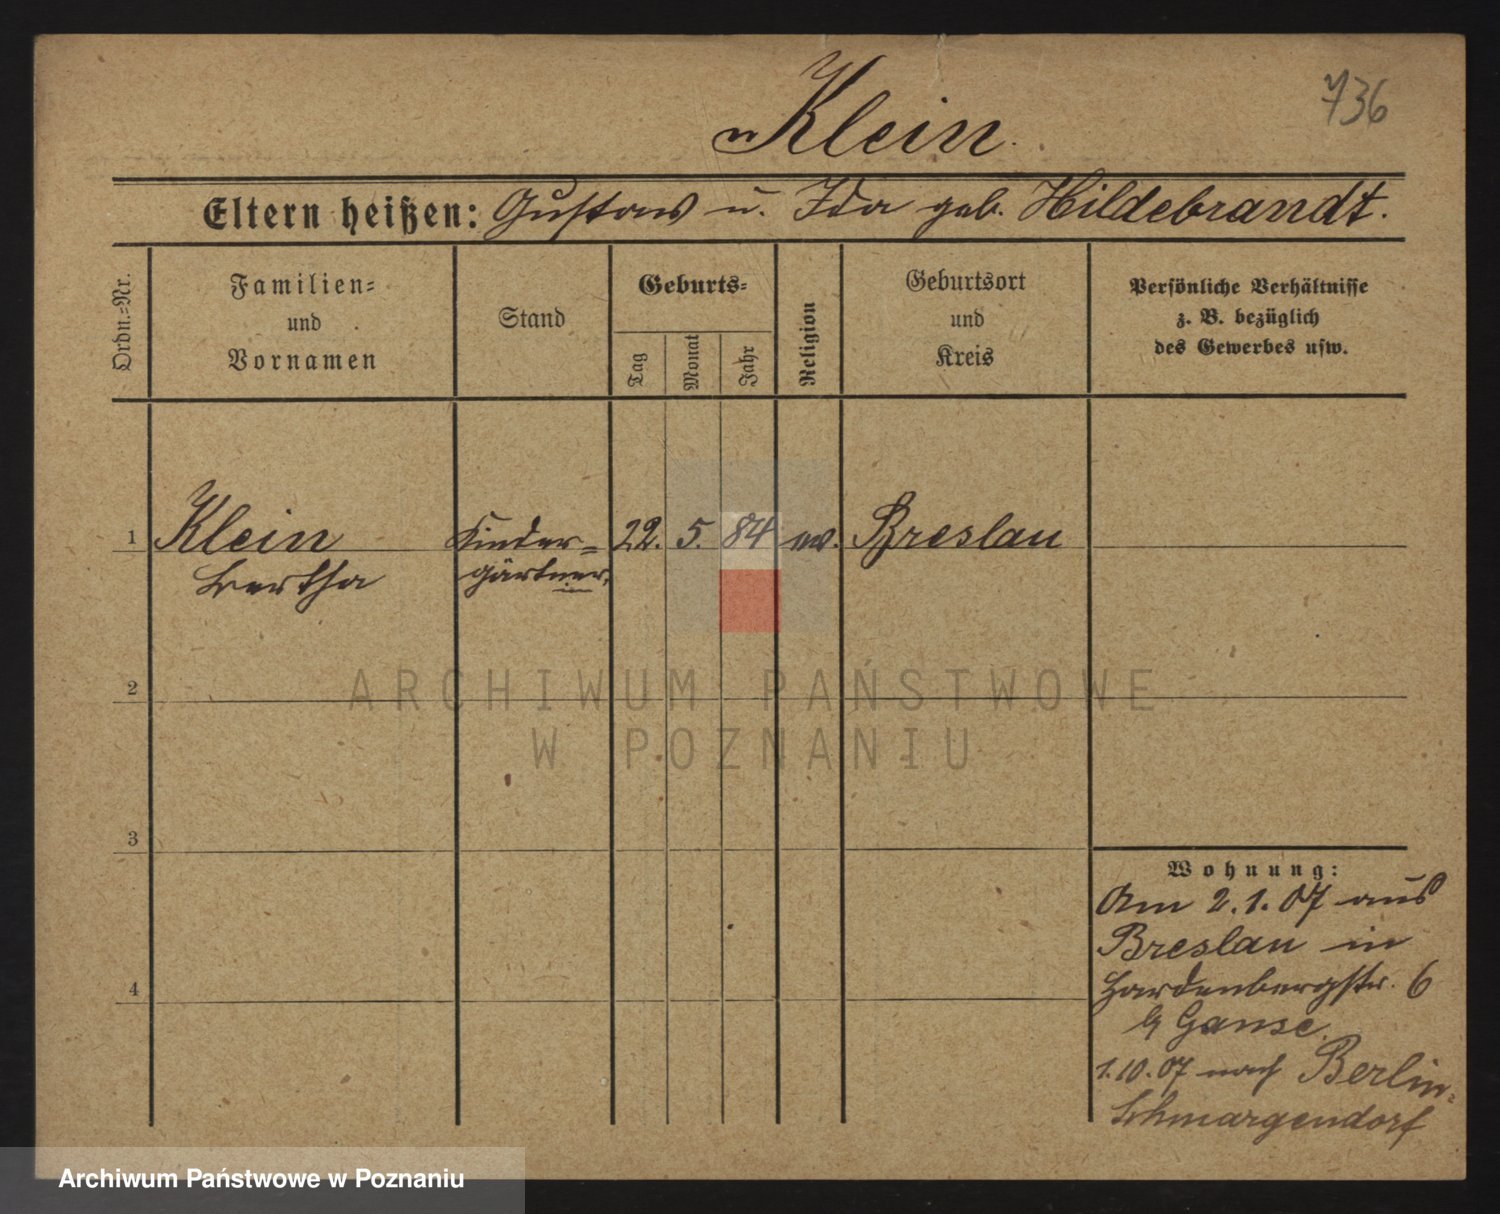 Klein.
736
Eltern heißen: Gustav u. Ida geb. Hildebrandt.
Ordn.-Nr.
Familien-
und
Vornamen
Stand
Geburts-
Tag
Monat
Jahr
Religion
Geburtsort
und
Kreis
Persönliche Verhältnisse
z. B. bezüglich
des Gewerbes usw.
1 Klein Kinder- 22. 5. 84 ev. Breslau
Bertha gärtner.
in
2
ARCHIWUM PAŃSTWOWE
W POZNANIU
3
Wohnung:
Am 2.1.07 aus
Breslau in
4
Hardenbergstr. 6
Ganse
1.10.07 nach Berlin-
Schmargendorf
Archiwum Państwowe w Poznaniu